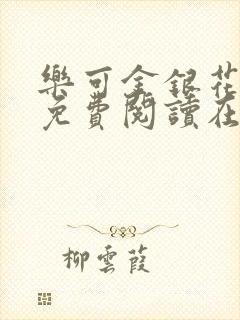 樂可金銀花
免費閱讀在
柳雲葭